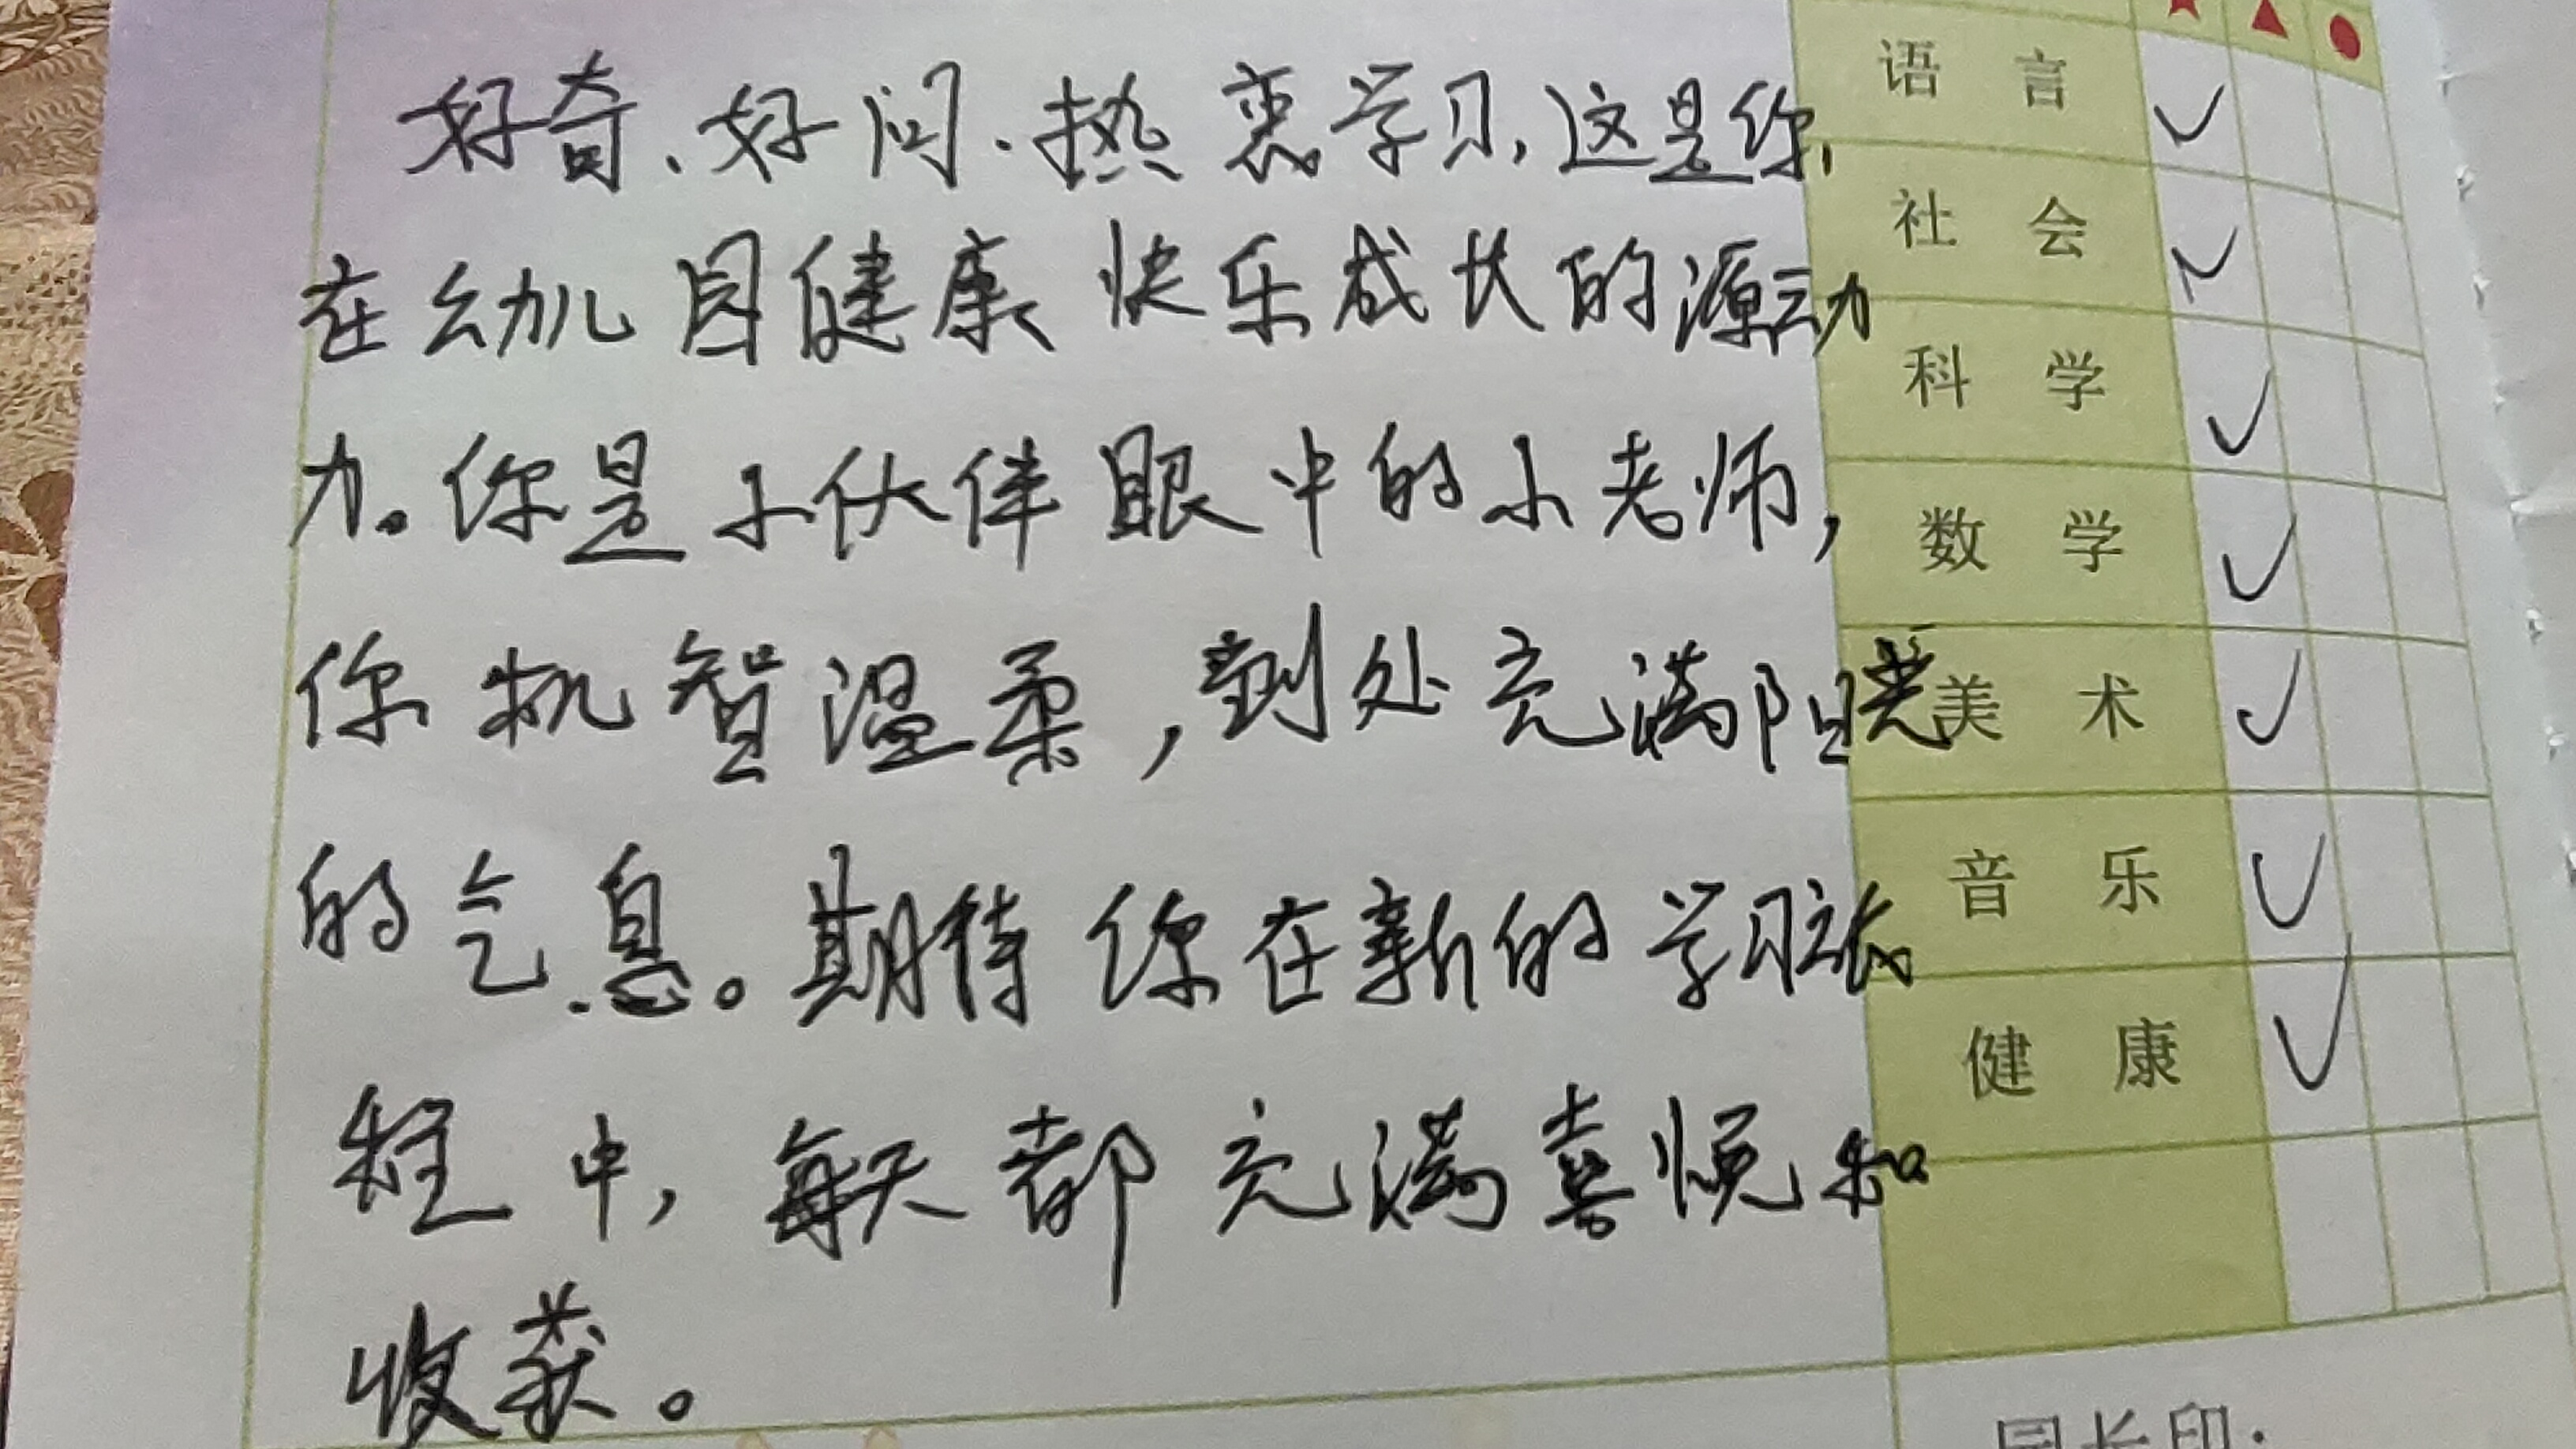 好奇、好问、热衷学习,这是你
在幼儿园健康快乐成长的源动
力。你是小伙伴眼中的小老师,
你机智温柔,到处充满阳光
的气息。期待你在新的学习旅
程中,每天都充满喜悦和
收获。
★ ▲ ●
语 言 ✓
社 会 ✓
科 学 ✓
数 学 ✓
美 术 ✓
音 乐 ✓
健 康 ✓
园长印: